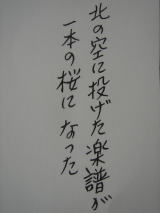 北の空に投げた楽譜が
一本の桜になった